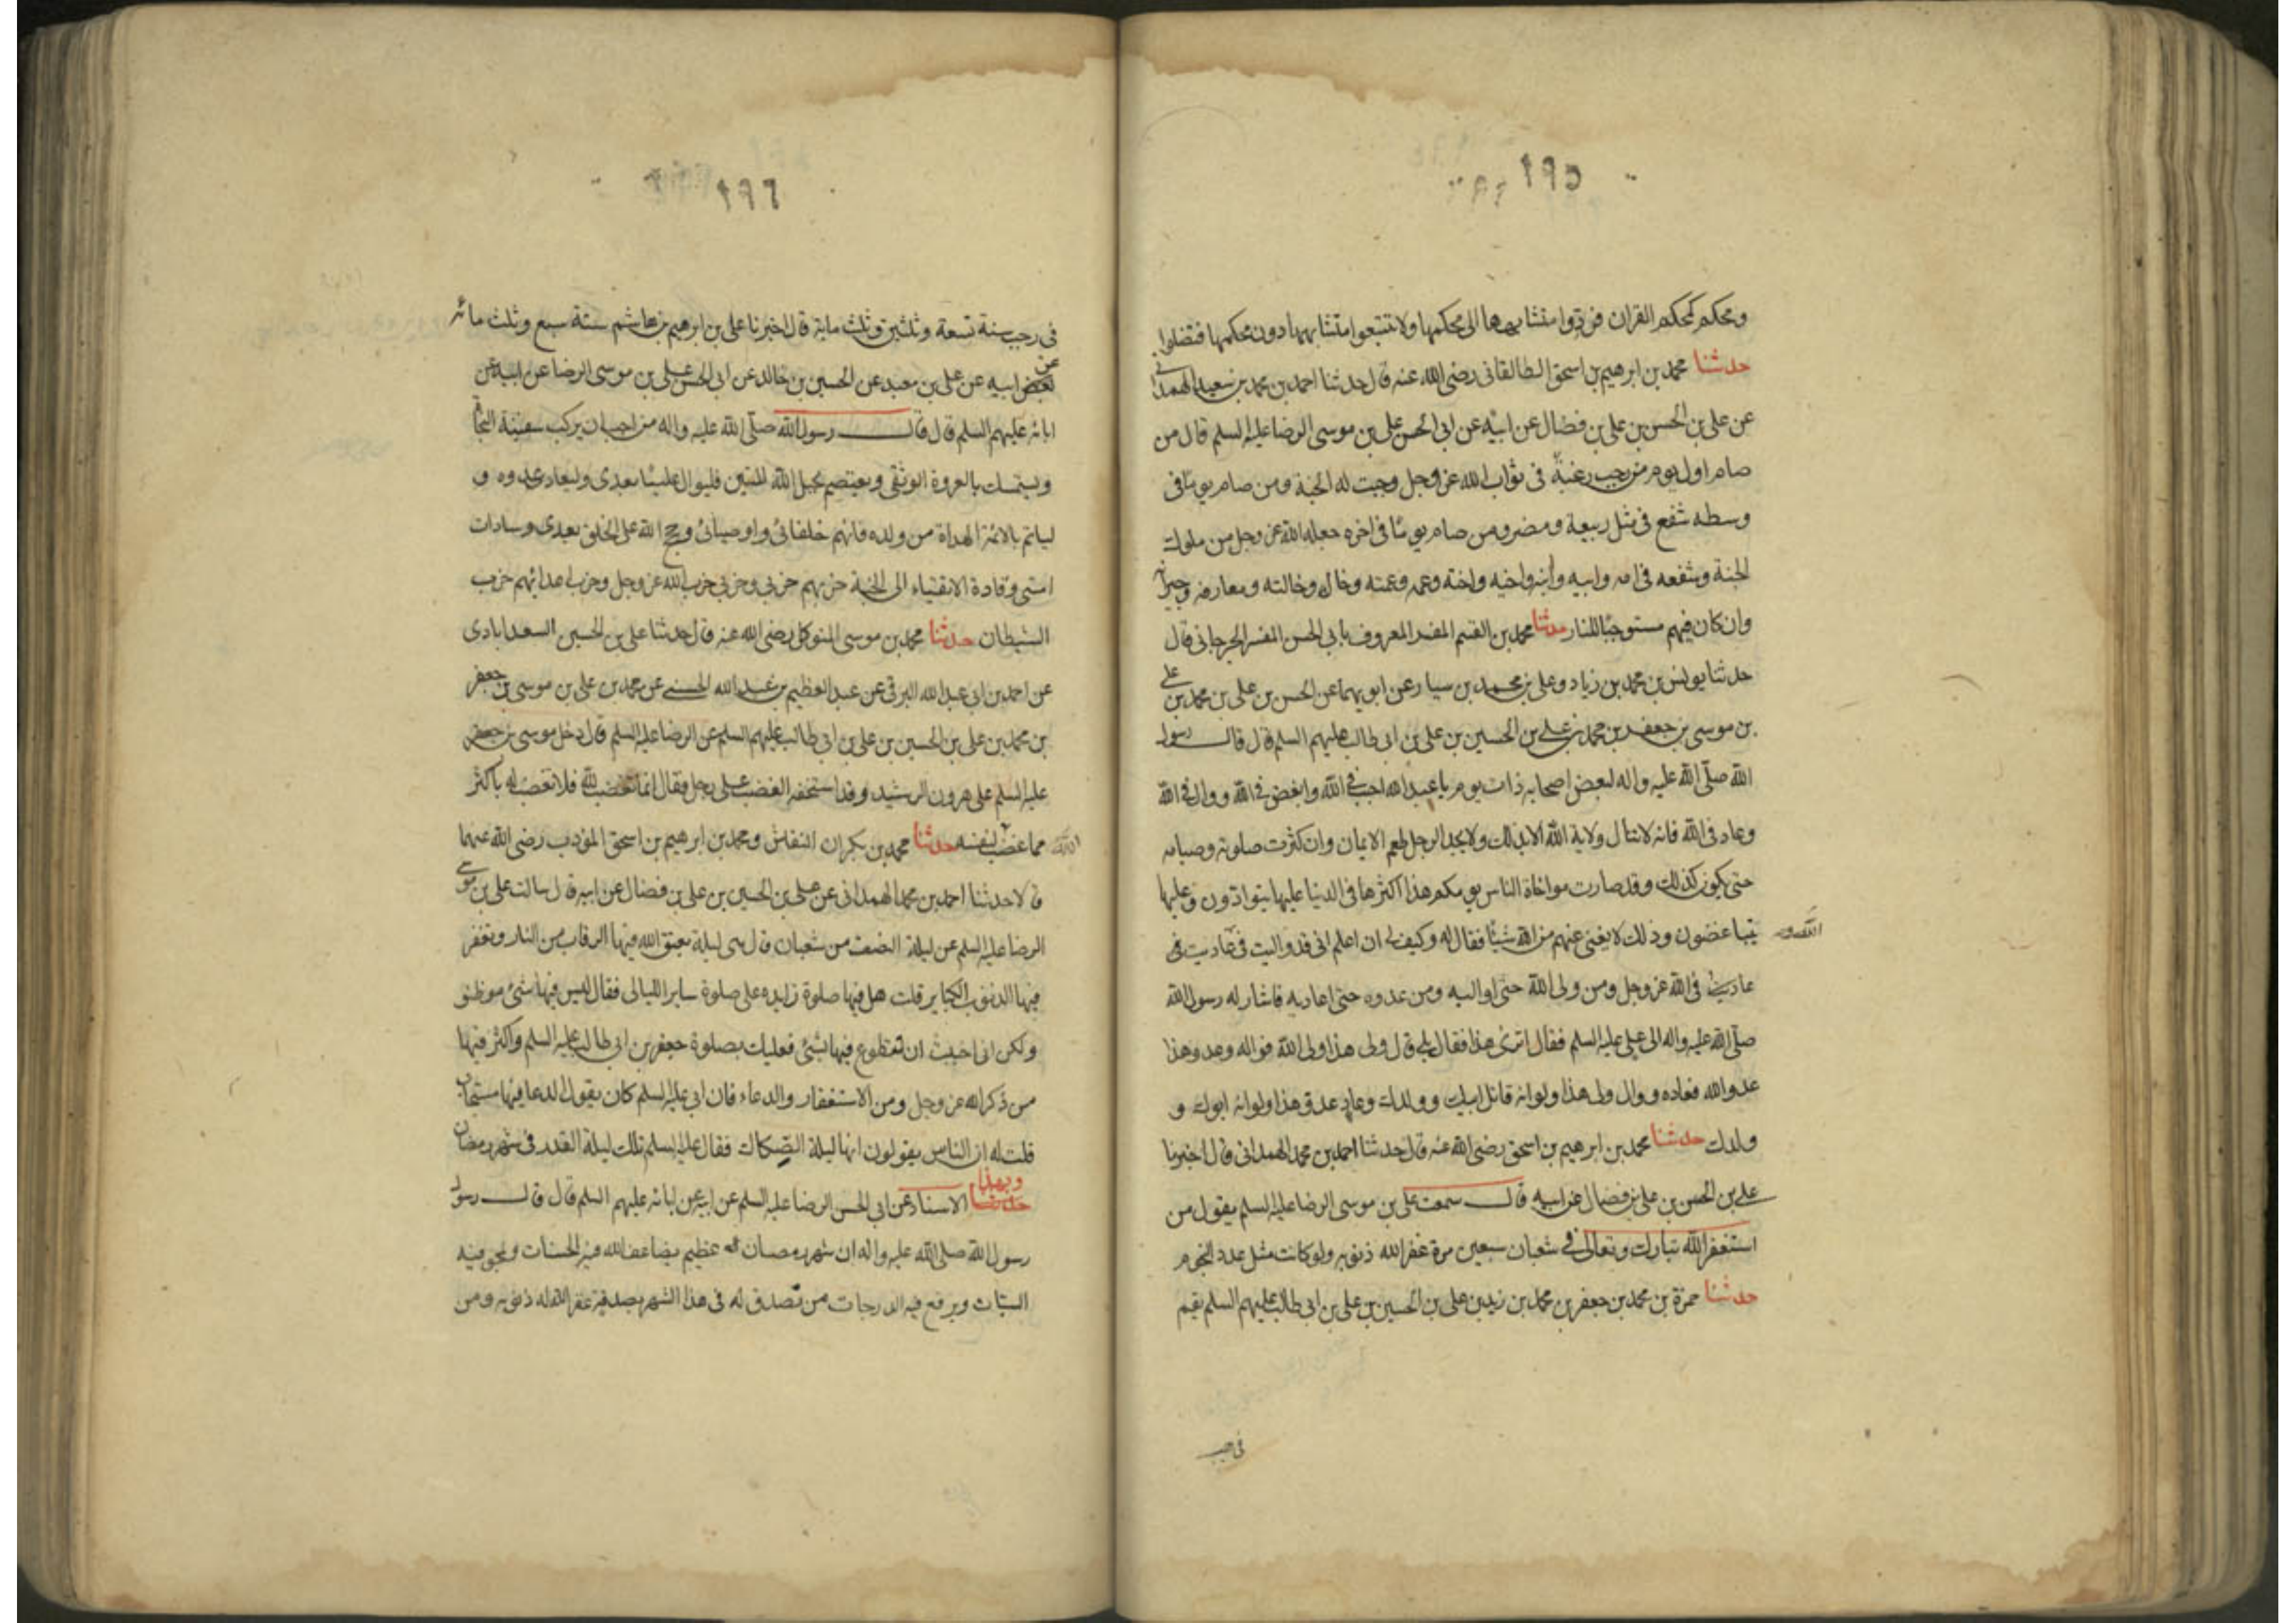 ١٩٥
ومحكم كمحكم القران فردوا متشابهها الى محكمها ولا تتبعوا متشابهها دون محكمها فتضلوا
حدثنا محمد بن ابرهيم بن اسحق الطالقانى رضى الله عنه قال حدثنا احمد بن محمد بن سعيد الهمدانى
عن على بن الحسن بن على بن فضال عن ابيه عن ابى الحسن على بن موسى الرضا عليه السلم قال من
صام اول يوم من رجب رغبة فى ثواب الله عز وجل وجبت له الجنة ومن صام يوما فى
وسطه شفع فى مثل ربيعة ومضر ومن صام يوما فى اخره جعله الله عز وجل من ملوك
الجنة وشفعه فى امه وابيه وابنه واخيه واخته وعمه وعمته وخاله وخالته ومعارفه وجيرانه
وان كان فيهم مستوجبا للنار حدثنا محمد بن القسم المفسر المعروف بابى الحسن المفسر الجرجانى قال
حدثنا يونس بن محمد بن زياد وعلى بن محمد بن سيار عن ابويهما عن الحسن بن على بن محمد بن على
بن موسى بن جعفر بن محمد بن على بن الحسين بن على بن ابى طالب عليهم السلم قال قال رسول
الله صلى الله عليه واله لبعض اصحابه ذات يوم يا عبد الله احبب فى الله وابغض فى الله ووال فى الله
وعاد فى الله فانه لا تنال ولاية الله الا بذلك ولا يجد الرجل طعم الايمان وان كثرت صلوته وصيامه
حتى يكون كذلك وقد صارت مواخاة الناس يومكم هذا اكثرها فى الدنيا عليها يتوادون وعليها
يتباغضون وذلك لا يغنى عنهم من الله شيئا فقال له وكيف لى ان اعلم انى قد واليت فى عاديت فى
عاديت فى الله عز وجل ومن ولى الله حتى اواليه ومن عدوه حتى اعاديه فاشار له رسول الله
صلى الله عليه واله الى على عليه السلم فقال اترى هذا فقال بلى قال ولى هذا ولى الله فواله وعدو هذا
عدو الله فعاده ووال ولى هذا ولو انه قاتل ابيك وولدك وعاد عدو هذا ولو انه ابوك و
ولدك حدثنا محمد بن ابرهيم بن اسحق رضى الله عنه قال حدثنا احمد بن محمد الهمدانى قال اخبرنا
على بن الحسن بن على بن فضال عن ابيه قال سمعت على بن موسى الرضا عليه السلم يقول من
استغفر الله تبارك وتعالى فى شعبان سبعين مرة غفر الله ذنوبه ولو كانت مثل عدد النجوم
حدثنا حمزة بن محمد بن جعفر بن محمد بن زيد بن على بن الحسين بن على بن ابى طالب عليهم السلم بقم
١٩٦
فى رجب سنة تسعة وثلثين وثلث ماية قال اخبرنا على بن ابرهيم بن هاشم سنة سبع وثلث مائه
عن ابيه عن على بن معبد عن الحسين بن خالد عن ابى الحسن على بن موسى الرضا عن ابيه عن
ابائه عليهم السلم قال قال رسول الله صلى الله عليه واله من احب ان يركب سفينة النجاة
ويستمسك بالعروة الوثقى ويعتصم بحبل الله المتين فليوال عليا بعدى وليعاد عدوه و
لياتم بالائمة الهداة من ولده فانهم خلفائى واوصيائى وحجج الله على الخلق بعدى وسادات
امتى وقادة الاتقياء الى الجنة حزبهم حزبى وحزبى حزب الله عز وجل وحزب اعدائهم حزب
الشيطان حدثنا محمد بن موسى المتوكل رضى الله عنه قال حدثنا على بن الحسين السعدابادى
عن احمد بن ابى عبد الله البرقى عن عبد العظيم بن عبد الله الحسنى عن محمد بن على بن موسى بن جعفر
بن محمد بن على بن الحسين بن على بن ابى طالب عليهم السلم عن الرضا عليه السلم قال دخل موسى بن جعفر
عليه السلم على هرون الرشيد وقد استخفه الغضب على رجل فقال انما تغضب لله فلا تغضب له باكثر
مما غضب لنفسه حدثنا محمد بن بكران النقاش ومحمد بن ابرهيم بن اسحق المؤدب رضى الله عنهما
قالا حدثنا احمد بن محمد الهمدانى عن على بن الحسين بن على بن فضال عن ابيه قال سالت على بن موسى
الرضا عليه السلم عن ليلة النصف من شعبان قال هى ليلة يعتق الله فيها الرقاب من النار ويغفر
فيها الذنوب الكباير قلت هل فيها صلوة زايده على صلوة ساير الليالى فقال ليس فيها شئ موظف
ولكن ان احببت ان تتطوع فيها بشئ فعليك بصلوة جعفر بن ابى طالب عليه السلم واكثر فيها
من ذكر الله عز وجل ومن الاستغفار والدعاء فان ابى عليه السلم كان يقول الدعا فيها مستجاب
قلت له ان الناس يقولون انها ليلة الصكاك فقال عليه السلم تلك ليلة القدر فى شهر رمضان
وبهذا الاسناد عن ابى الحسن الرضا عليه السلم عن ابيه عن ابائه عليهم السلم قال قال رسول
رسول الله صلى الله عليه واله ان شهر رمضان شهر عظيم يضاعف الله فيه الحسنات ويمحو فيه
السيئات ويرفع فيه الدرجات من تصدق له فى هذا الشهر بصدقة غفر الله له ذنوبه ومن